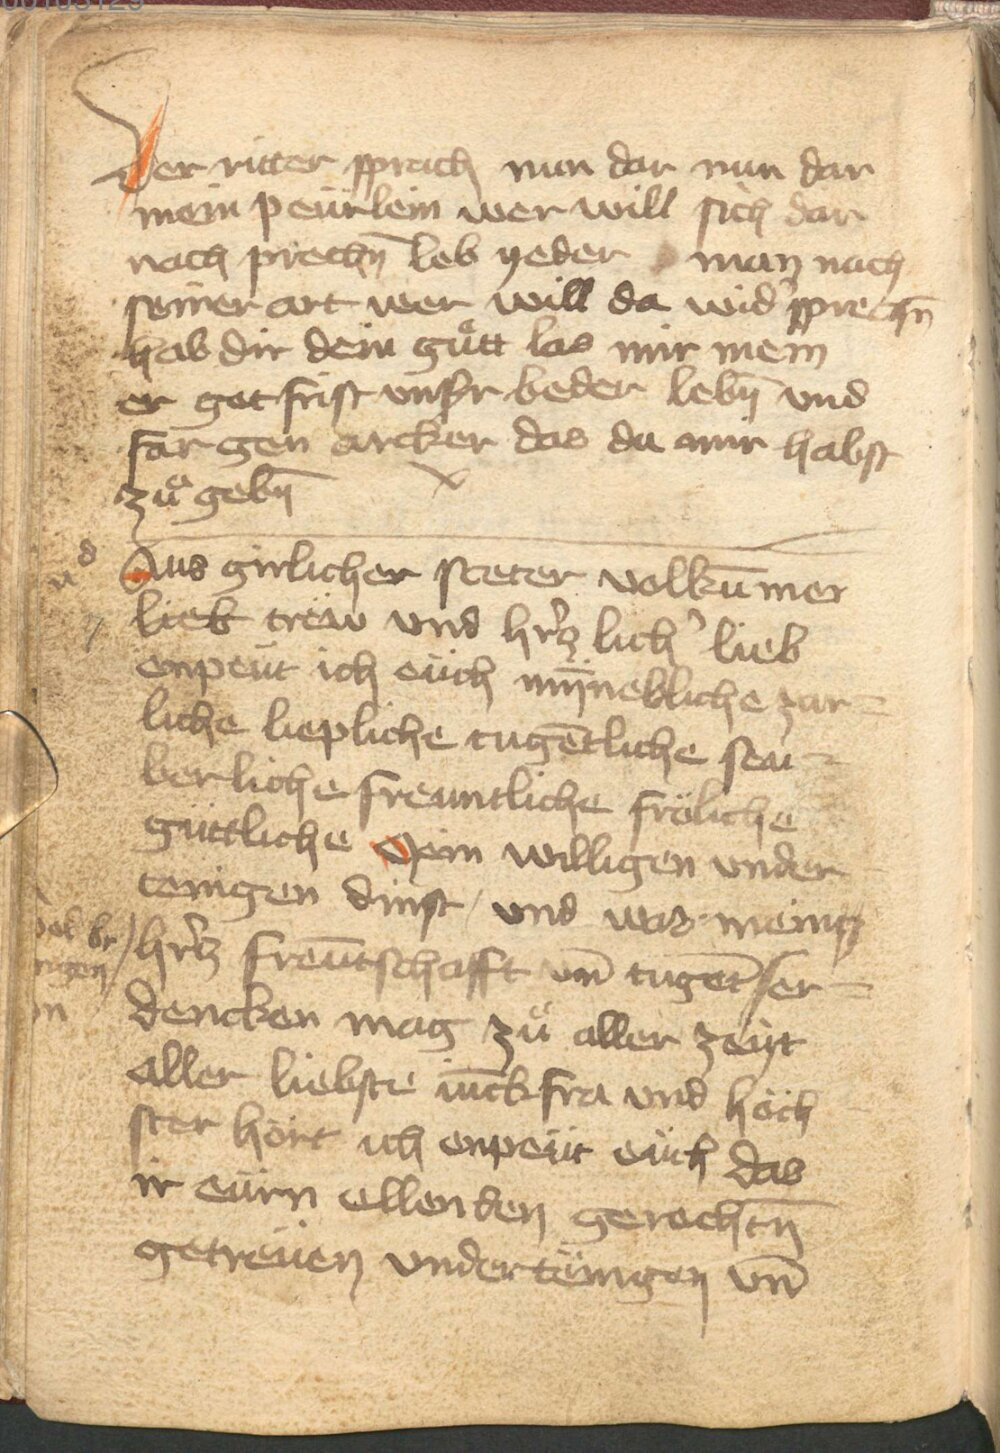 Der ritter sprach nun dar nun dar
mein peürlein wer will sich dar
nach prechn̄ leb yeder man nach
seiner art wer will da wid' sprechn̄
hab dir dein gůtt las mir mein
er got frist unsßr beder lebn̄ vnd
far gen arcker das du mir habst
zů gebn̄
Aus girlicher steter volkūmer
lieb trëw vnd hr̓tz lich' lieb
enpeüt ich eüch myn̄ekliche zar=
liche liepliche tugētliche seü=
berliche freuntliche fröliche
güttliche Mein willigen vnder
tenigen dinst / vnd was meins
hr̓tz freūtschafft vn̄ tugēt er=
dencken mag zů aller zeÿt
aller liebste iūckfra vnd höch
ster hört ich enpeüt eüch das
ir eürn ellenden gerechtn̄
getreüen vndertänigen vn̄